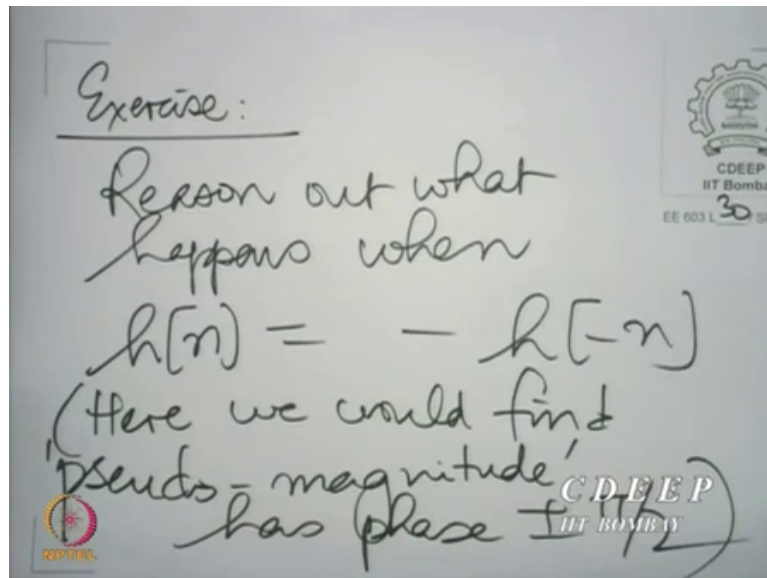 Exercise:
Reason out what
happens when
h[n] = - h[-n]
(Here we would find
'pseudo-magnitude'
has phase ± π/2)
CDEEP
IIT Bomba
EE 603 L 30 / Sl
CDEEP
IIT BOMBAY
NPTEL